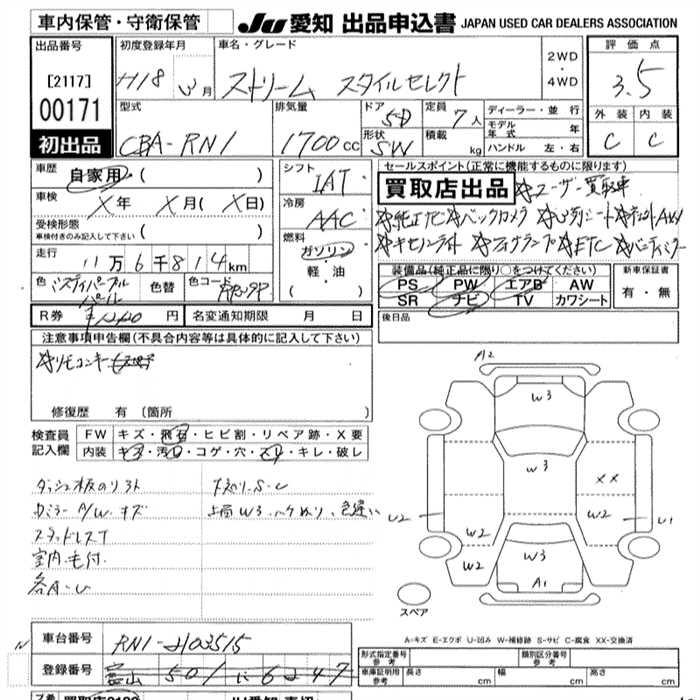 車内保管・守衛保管 JU 愛知 出品申込書 JAPAN USED CAR DEALERS ASSOCIATION
出品番号 初度登録年月 車名・グレード 2WD・4WD 評価点
[2117] H18 月 ストリーム スタイルセレクト 3.5
00171 型式 排気量 ドア 5D 定員 7人 ディーラー・並行 外装 内装
初出品 CBA-RN1 1700cc 形状 SW 積載 kg モデル年式 年 ハンドル 左・右 C C
車歴 自家用 ( ) シフト IAT セールスポイント(正常に機能するものに限ります)
車検 X年 X月 (X日) 冷房 AAC 買取店出品 ユーザー買取車
受検形態 車検付きのみ記入して下さい ( ) 純正ナビ バックカメラ 3列シート AW
走行 11万6千814km 燃料 ガソリン・軽・油 ( ) キセノンライト フォグランプ ETC
色 パール 色替 色コード 装備品(純正品に限り○をつけてください) 新車保証書
PS PW エアB AW 有・無
R券 円 名変通知期限 月 日 SR ナビ TV カワシート
注意事項申告欄(不具合内容等は具体的に記入して下さい) 後日品
リモコンキー
修復歴 有 (箇所 )
検査員記入欄 FW キズ・飛石・ヒビ割・リペア跡・X要
内装 キズ・汚れ・コゲ・穴・スレ・キレ・破レ
A2
W3
W3
XX
U2 W2 W2 U1
W2 W3
A1
ダッシュ板のリフト 下廻りS・U
カミラーP/Wキズ 上廻W3.ハケぬり、色違い
スタッドレスT
室内毛付.
各A・U
スペア
A=キズ E=エクボ U=凹み W=補修跡 S=サビ C=腐食 XX=交換済
車台番号 RN1-
登録番号 富山 501 に 6247
形式指定番号 参考 類別区分番号 参考
車庫証明用 参考 長さ cm 幅 cm 高さ cm